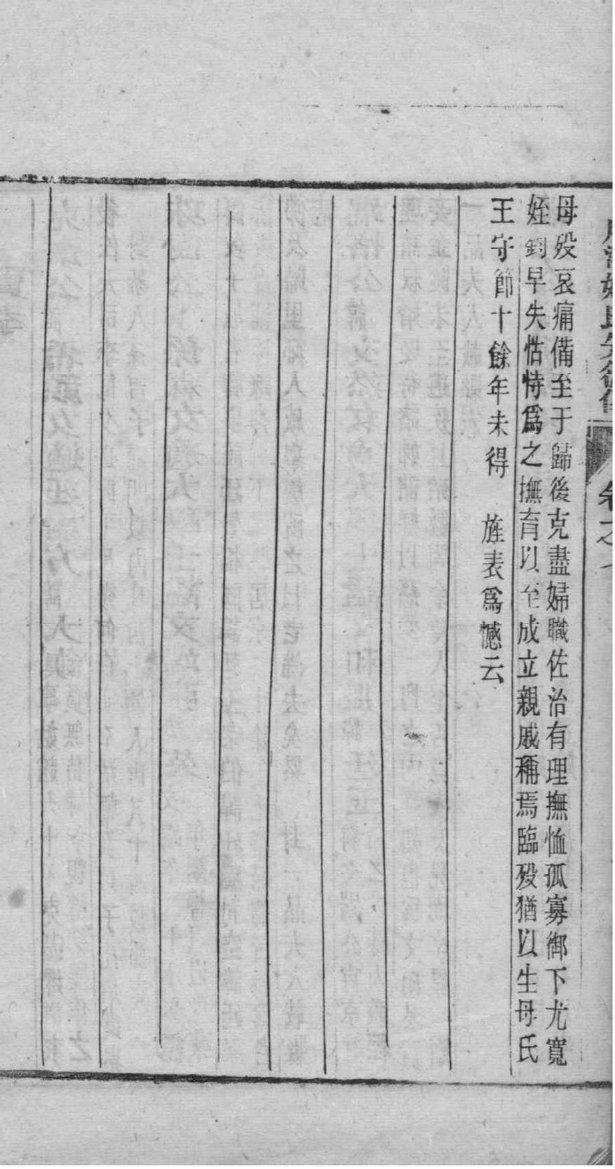 母歿哀痛備至于歸後克盡婦職佐治有理撫恤孤寡御下尤寬
姪鈞早失怙恃爲之撫育以至成立親戚稱焉臨歿猶以生母氏
王守節十餘年未得 旌表爲憾云